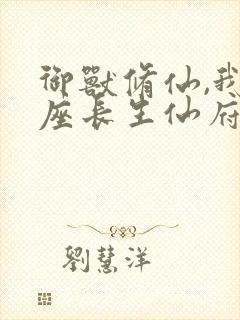 御獸脩仙,我
座長生仙府
劉慧洋